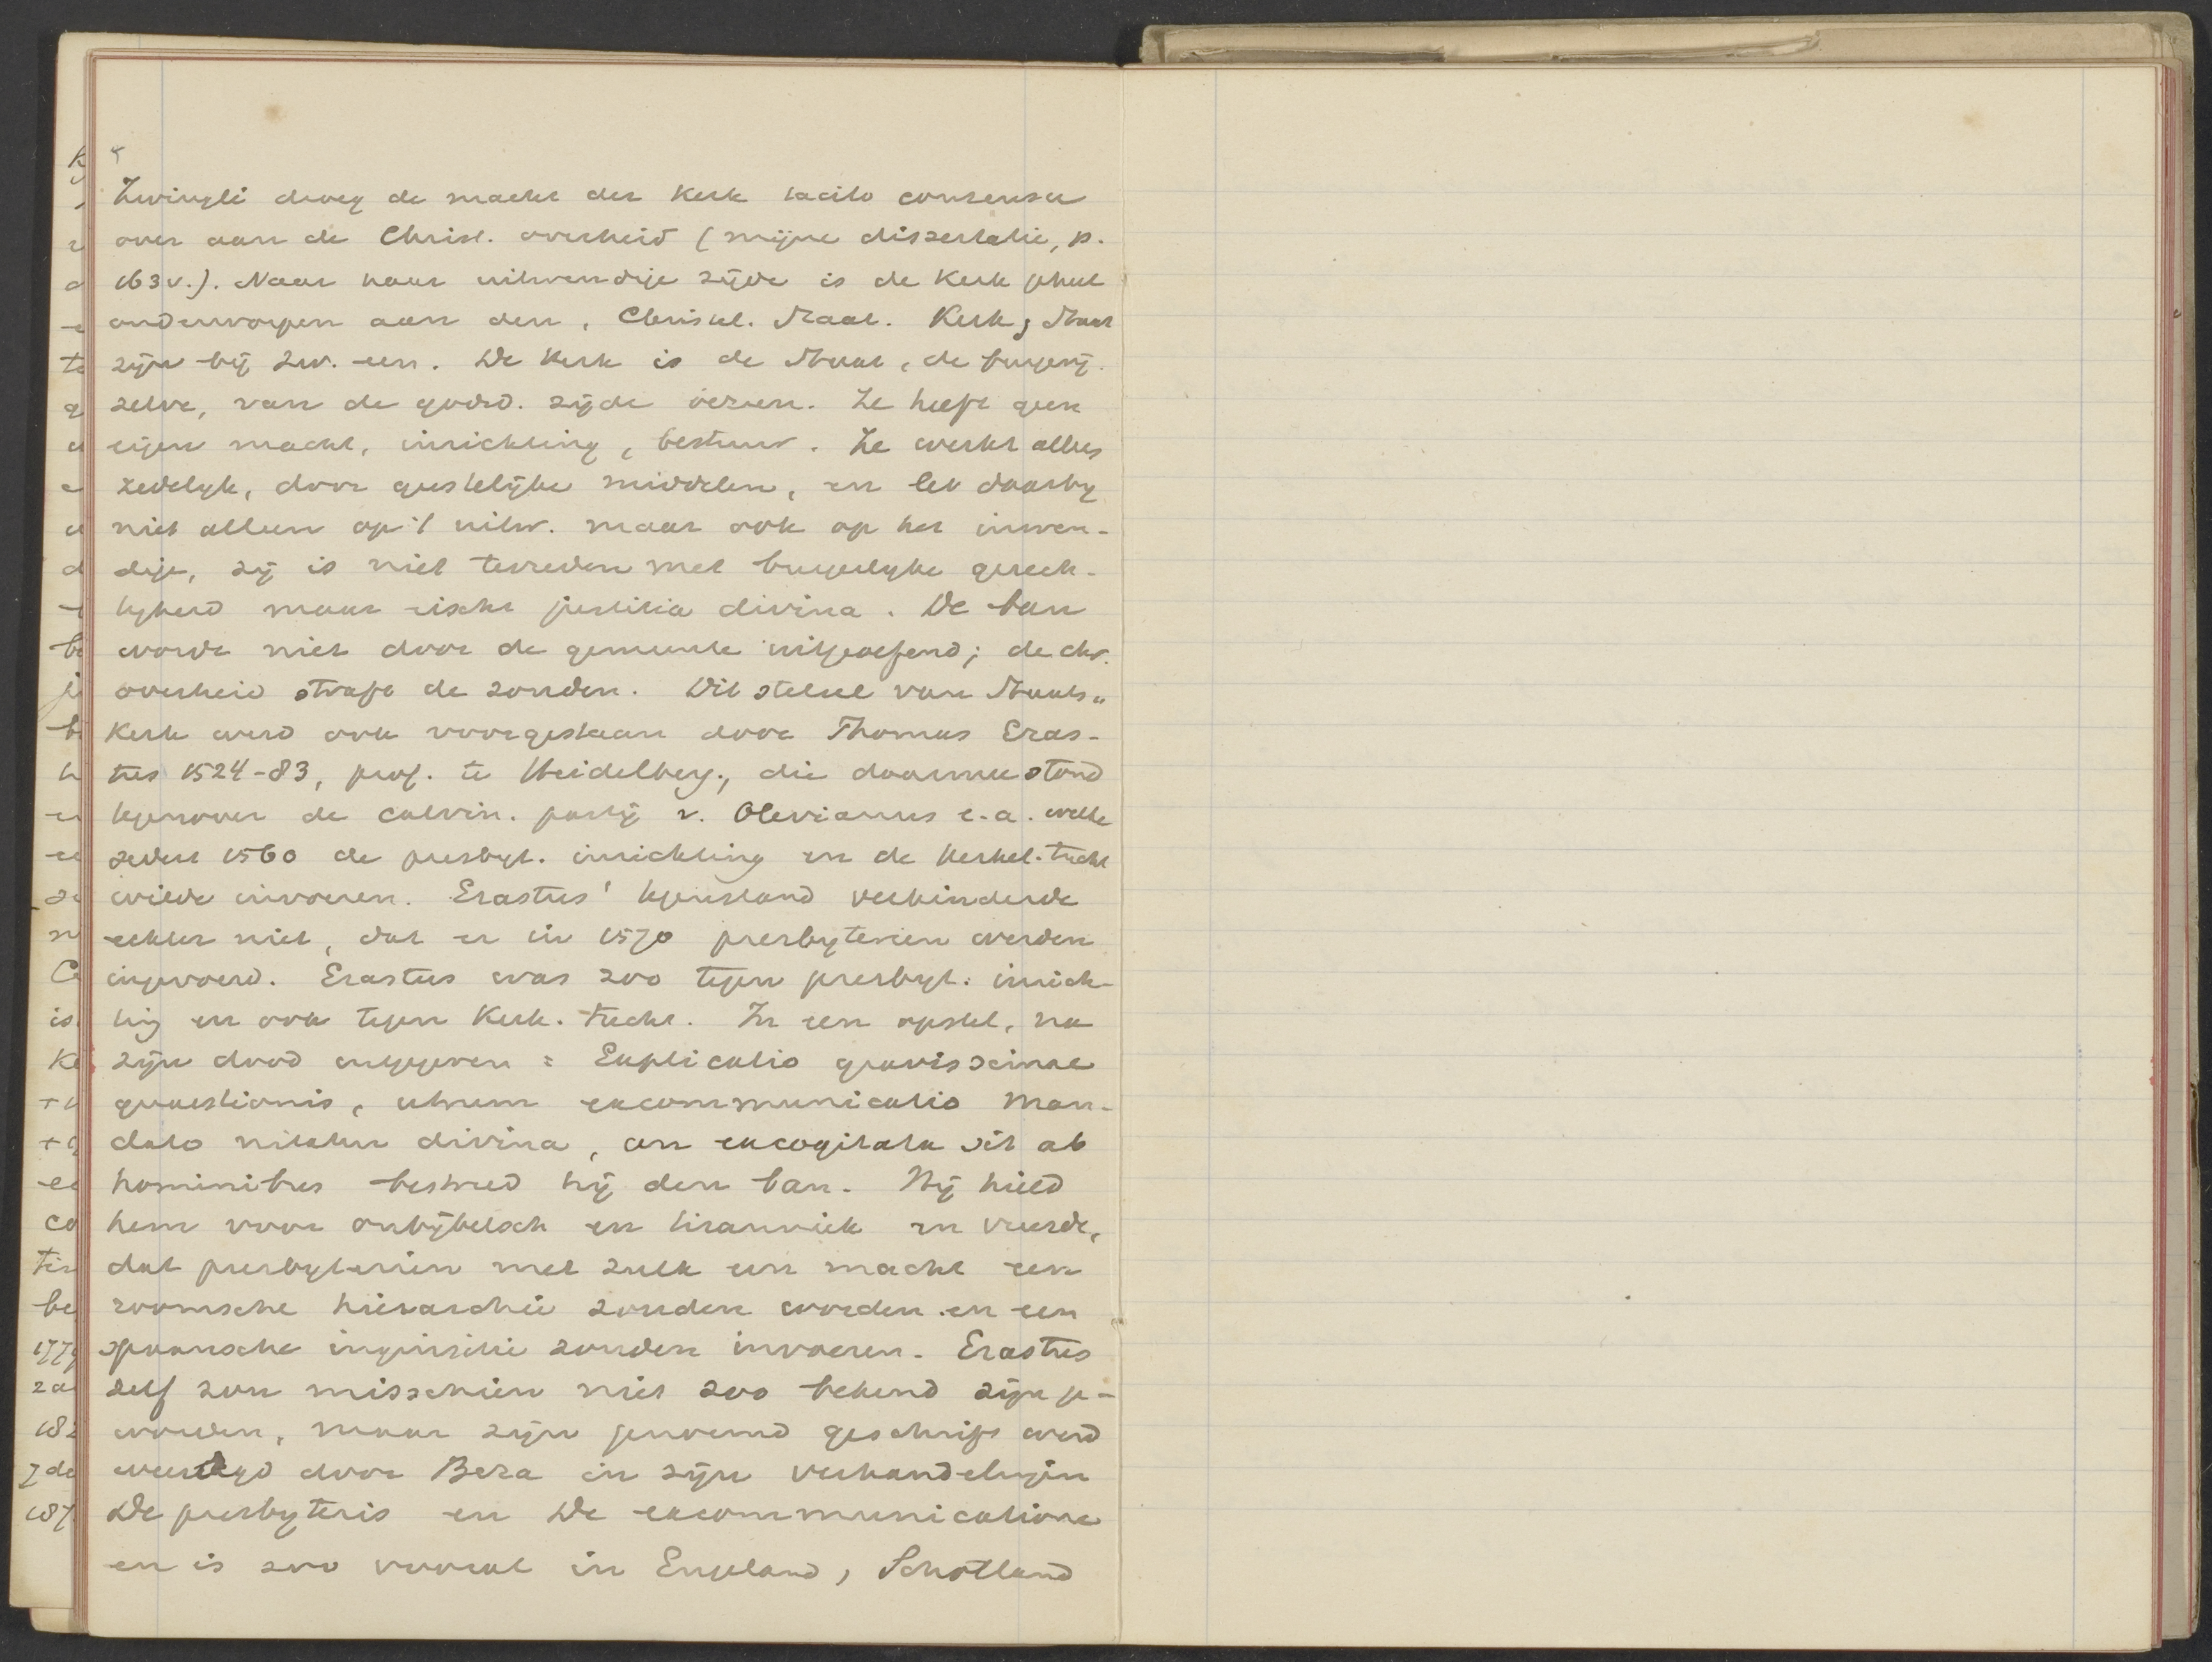 Zwingli droeg de macht der Kerk tacito consensu
over aan de Christ. overheid (mijne dissertatie, p.
163 v.). Naar haar uitwendige zijde is de Kerk geheel
onderworpen aan den, Christel. Staat. Kerk & Staat
zijn bij Zw. een. De Kerk is de Staat, de burgerij
zelve, van de godsd. zijde bezien. Ze heeft geen
eigen macht, inrichting, bestuur. Ze werkt alles
zedelijk, door geestelijke middelen, en let daarbij
niet alleen op 't uitw. maar ook op het inwen-
dige, zij is niet tevreden met burgerlijke gerech-
tigheid maar eischt justitia divina. De ban
worde niet door de gemeente uitgeoefend; de chr.
overheid straft de zonden. Dit stelsel van Staats-
Kerk werd ook voorgestaan door Thomas Eras-
tus 1524-83, prof. te Heidelberg, die daarmee stond
tegenover de calvin. partij v. Olevianus e.a. welke
sedert 1560 de presbyt. inrichting en de Kerkel. tucht
wilde invoeren. Erastus' tegenstand verhinderde
echter niet, dat er in 1570 presbyterien werden
ingevoerd. Erastus was zoo tegen presbyt. inrich-
ting en ook tegen Kerk. tucht. In een opstel, na
zijn dood uitgegeven: Explicatio gravissimae
quaestionis, utrum excommunicatio man-
dato nitatur divina, an excogitata sit ab
hominibus bestreed hij den ban. Hij hield
hem voor onbijbelsch en tiranniek en vreesde,
dat presbyterien met zulk een macht een
roomsche hierarchie zouden worden en een
spaansche inquisitie zouden invoeren. Erastus
zelf zou misschien niet zoo bekend zijn ge-
worden, maar zijn genoemd geschrift werd
weerlegd door Beza in zijn verhandelingen
De presbyteris en De excommunicatione
en is zoo vooral in Engeland, Schotland